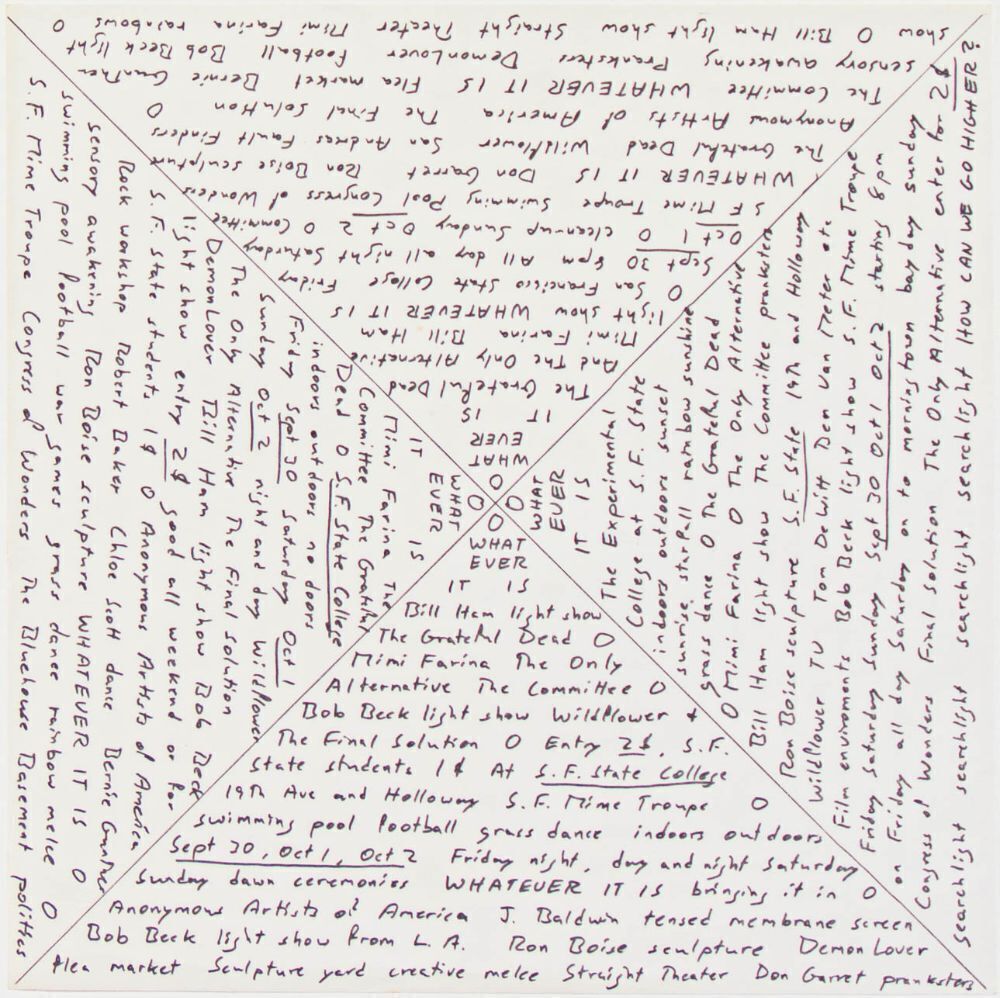 O
WHAT
EVER
IT IS
The Grateful Dead
And The Only Alternative
Mimi Farina Bill Ham
light show WHATEVER IT IS
O San Francisco State College Friday
Sept 30 8pm All day all night Saturday
Oct 1 O cleanup Sunday Oct 2 O Committee
S F Mime Troupe Swimming Pool Congress of Wonders
WHATEVER IT IS Don Garret Ron Boise sculpture
The Grateful Dead Wildflower San Andreas Fault Finders
Anonymous Artists of America The Final Solution O
The Committee WHATEVER IT IS Flea market Bernie Gunther
sensory awakening Pranksters DemonLover Football Bob Beck light
show O Bill Ham light show Straight Theater Mimi Farina rainbows O
O
WHAT
EVER
IT IS
The Experimental
College at S.F. State
indoors outdoors sunset
sunrise starfall rainbow sunshine
grass dance O The Grateful Dead
O Mimi Farina O The Only Alternative
Bill Ham light show The Committee pranksters
Ron Boise sculpture S.F. State 19th and Holloway
Wildflower TV Tom DeWitt Den Van Meter etc
Film enviroments Bob Beck light show S.F. Mime Troupe
Friday Saturday Sunday Sept 30 Oct 1 Oct 2 starting 8pm
on Friday all day Saturday on to morningtown bay day sunday
Congress of Wonders Final Solution The Only Alternative enter for 2$
Searchlight searchlight searchlight searchlight searchlight HOW CAN WE GO HIGHER?
O
WHAT
EVER
IT IS
Bill Ham light show
The Grateful Dead O
Mimi Farina The Only
Alternative The Committee O
Bob Beck light show Wildflower +
The Final Solution O Entry 2$, S.F.
State students 1$ At S.F. State College
19th Ave and Holloway S.F. Mime Troupe O
swimming pool football grass dance indoors outdoors
Sept 30, Oct 1, Oct 2 Friday night, day and night Saturday
Sunday dawn ceremonies WHATEVER IT IS bringing it in O
Anonymous Artists of America J. Baldwin tensed membrane screen
Bob Beck light show from L.A. Ron Boise sculpture DemonLover
flea market Sculpture yard creative melee Straight Theater Don Garret pranksters
O
WHAT
EVER
IT IS
Mimi Farina The
Committee The Grateful
Dead O S.F. State College
indoors outdoors no doors
Friday Sept 30 Saturday Oct 1
Sunday Oct 2 night and day Wildflower
The Only Alternative The Final Solution
DemonLover Bill Ham light show Bob Beck
light show entry 2$ good all weekend or for
S.F. State students 1$ O Anonymous Artists of America
Rock workshop Robert Baker Chloe Scott dance Bernie Gunther
sensory awakening Ron Boise sculpture WHATEVER IT IS O
swimming pool football war games grass dance rainbow melee O
S.F. Mime Troupe Congress of Wonders The Bluehouse Basement politics